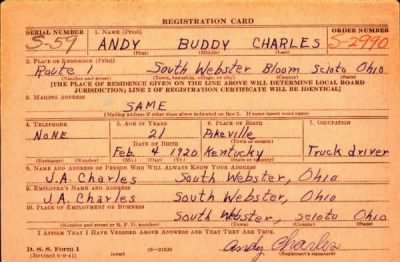 REGISTRATION CARD
SERIAL NUMBER 1. NAME (Print) ORDER NUMBER
S-59 ANDY BUDDY CHARLES S-2990
(First) (Middle) (Last)
2. PLACE OF RESIDENCE (Print)
Route 1 South Webster Bloom Scioto Ohio
(Number and street) (Town, township, village, or city) (County) (State)
[THE PLACE OF RESIDENCE GIVEN ON THE LINE ABOVE WILL DETERMINE LOCAL BOARD
JURISDICTION; LINE 2 OF REGISTRATION CERTIFICATE WILL BE IDENTICAL]
3. MAILING ADDRESS
SAME
[Mailing address if other than place indicated on line 2. If same insert word same]
4. TELEPHONE 5. AGE IN YEARS 6. PLACE OF BIRTH 7. OCCUPATION
NoNE 21 Pikeville
DATE OF BIRTH
Feb 4 1920 Kentucky Truck driver
(Exchange) (Number) (Mo.) (Day) (Yr.) (State or country)
8. NAME AND ADDRESS OF PERSON WHO WILL ALWAYS KNOW YOUR ADDRESS
J.A. Charles South Webster, Ohio
9. EMPLOYER'S NAME AND ADDRESS
J.A. Charles South Webster, Ohio
10. PLACE OF EMPLOYMENT OR BUSINESS
South Webster, Scioto Ohio
(Number and street or R. F. D. number) (Town) (County) (State)
I AFFIRM THAT I HAVE VERIFIED ABOVE ANSWERS AND THAT THEY ARE TRUE.
D. S. S. Form 1 16-21630 Andy Charles
(Revised 6-9-41) (over) (Registrant's signature)